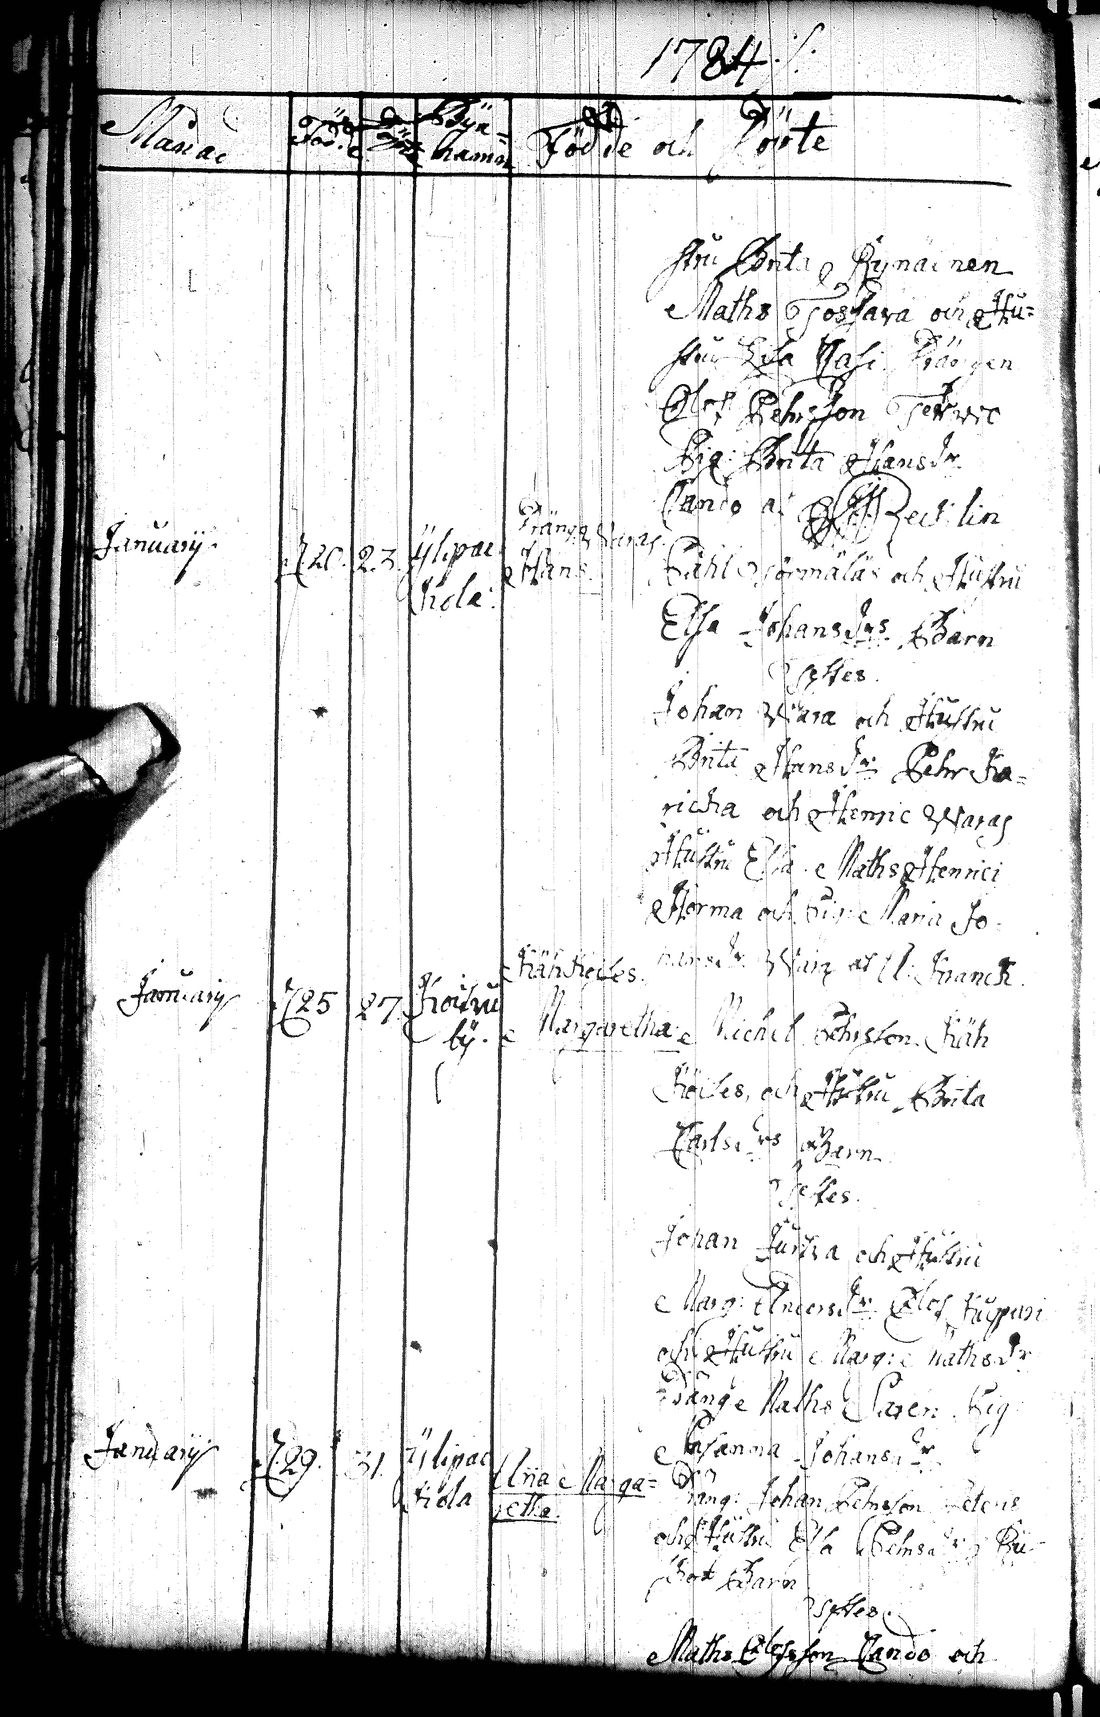 1784 ./.
Månad Född Döt Byanamn Födde och Döpte
stru Brita Rynäinen
Maths Toskara och Hu=
stru Lisa Drängen
Olof Pehrsson Terwic
Pig: Brita Hansdr
Cando af Recklin
Januarij 20. 23. Ylipac Drängz Waras
kola: Hans Påhl Sormälas och Hustru
Elsa Johansdrs Barn
Testes.
Johan Wara och Hustru
Brita Hansdr Pehr Ka=
richa och Henric Waras
Hustru Elsa. Maths Henrici
Horma och Pig: Maria Jo
hansdr Wara af A: Franck.
Januarij 25 27. Koifvu Kähköites.
by. Margaretha Michel Pehrsson Käh
köites, och Hustru Brita
Carlsdrs Barn
Testes.
Johan Jurva och Hustru
Marg: Andersdr Olof Kuppari
och Hustru Marg: Mathsdr
Dräng Maths Paren Pig
Susanna Johansdr
Januarij 29. 31. Ylipac Anna Marga= Dräng: Johan Pehrsson Peteris
kola retha. och Hustru Elsa Pehrsdr Ry
kot Barn
Testes.
Maths Olofsson Cando och